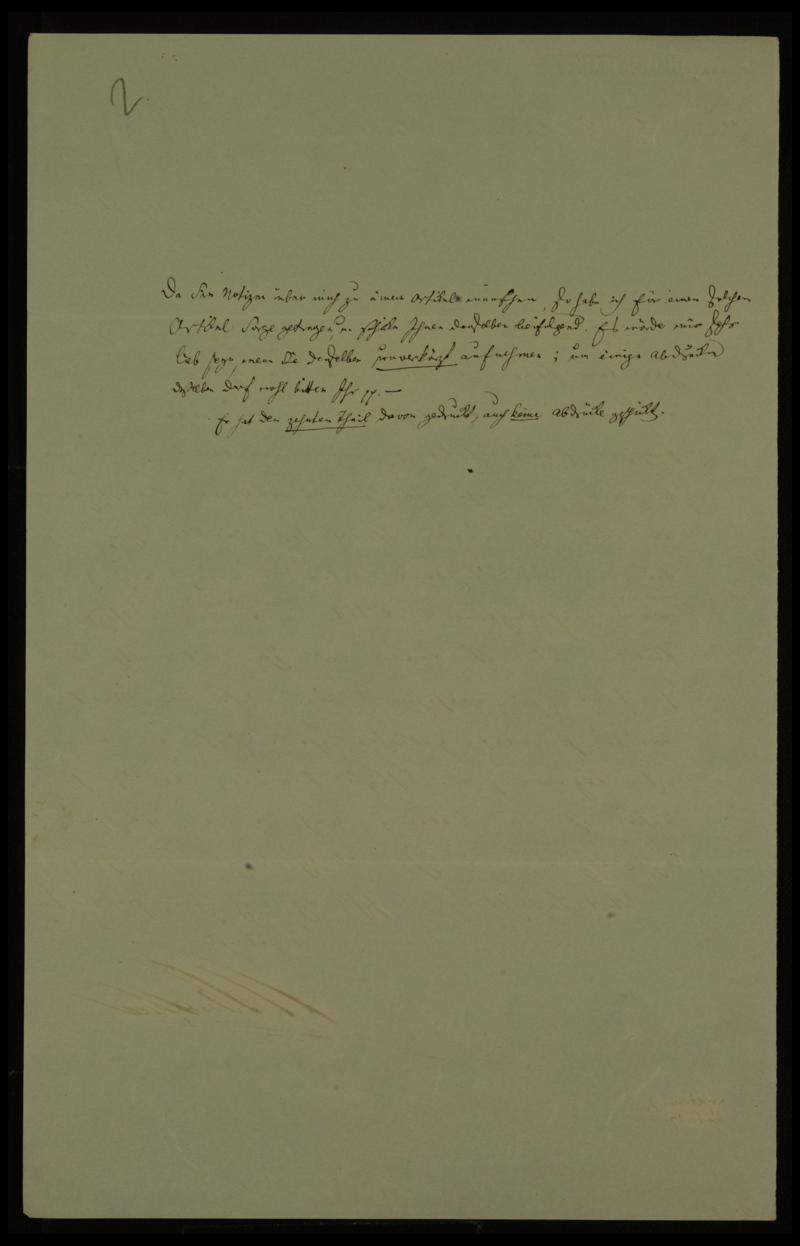 2.
Da Sie Notizen über mich zu einem Artikel wünschen, so habe ich für einen solchen
Artikel Sorge getragen, u. schicke Ihnen denselben beifolgend. Es würde mir sehr
lieb seyn, wenn Sie denselben unverkürzt aufnehmen; um einige Abdrücke
desselben darf wohl bitten Ihr pp. —
Er hat den zehnten Theil davon gedruckt, auch keine Abdrücke geschickt.